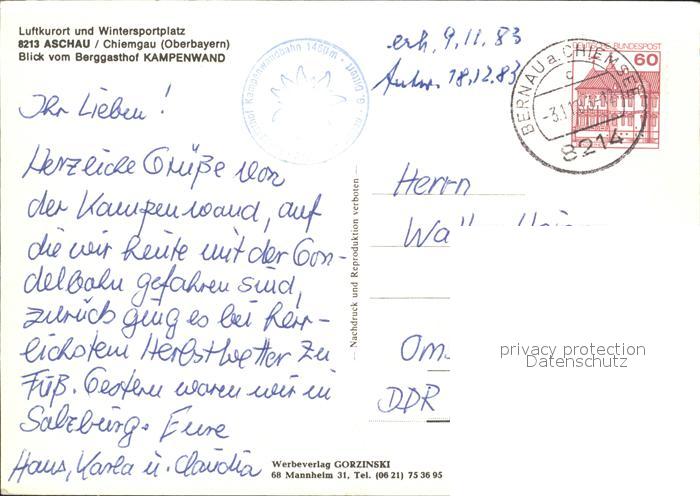 Luftkurort und Wintersportplatz
8213 ASCHAU / Chiemgau (Oberbayern)
Blick vom Berggasthof KAMPENWAND
erh. 9.11.83
Antw. 18.12.83
Kampenwandbahn 1460 m
BERNAU a. CHIEMSEE
c
8214
DEUTSCHE BUNDESPOST
60
Ihr Lieben!
Herzliche Grüße von
der Kampenwand, auf
die wir heute mit der Gon-
delbahn gefahren sind,
zurück ging es bei herr-
lichstem Herbstwetter zu
Fuß. Gestern waren wir in
Salzburg. Eure
Hans, Karla u. Claudia
Nachdruck und Reproduktion verboten
Herrn
DDR
privacy protection
Datenschutz
Werbeverlag GORZINSKI
68 Mannheim 31, Tel. (06 21) 75 36 95